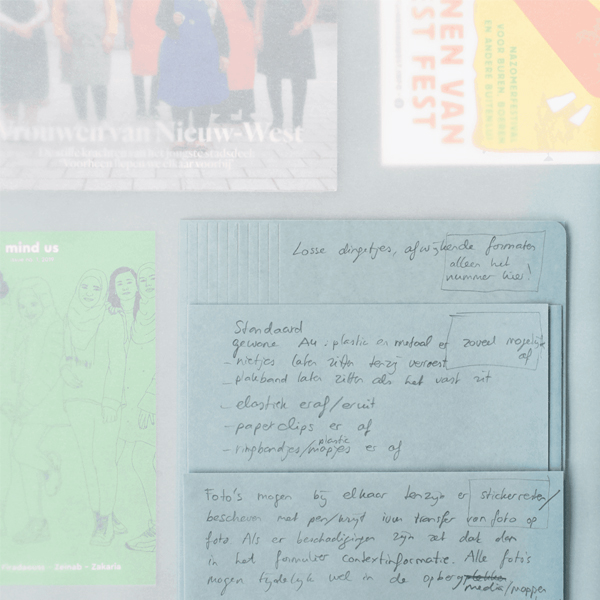 Vrouwen van Nieuw-West
NEN VAN
ST FEST
NAZOMERFESTIVAL
VOOR BUREN, BOEREN
EN ANDERE BUITENLUI
mind us
Losse dingetjes, afwijkende formaten
alleen het
nummer hier!
Standaard
gewone A4: plastic en metaal er zoveel mogelijk
af
- nietjes laten zitten tenzij verroest
- plakband laten zitten als het vast zit
- elastiek eraf/eruit
- paperclips er af
- ringbandjes/mapjes er af
plastic
Foto's mogen bij elkaar tenzij er stickerresten/
beschreven met pen/krijt ivm transfer van foto op
foto. Als er beschadigingen zijn zet dat dan
in het formulier contextinformatie. Alle foto's
mogen tijdelijk wel in de opberg
media/mappen
- Jamab - Zakaria